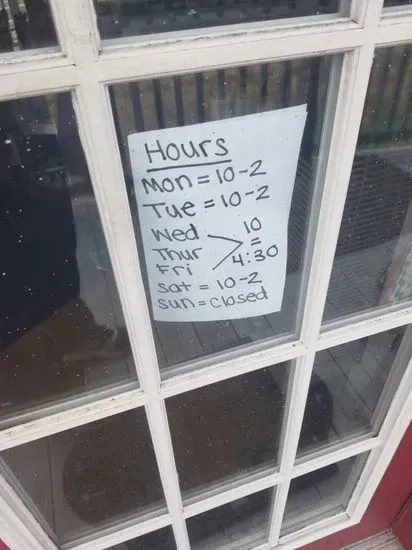 Hours
Mon = 10-2
Tue = 10-2
Wed
Thur
Fri
10
=
4:30
Sat = 10-2
Sun = Closed